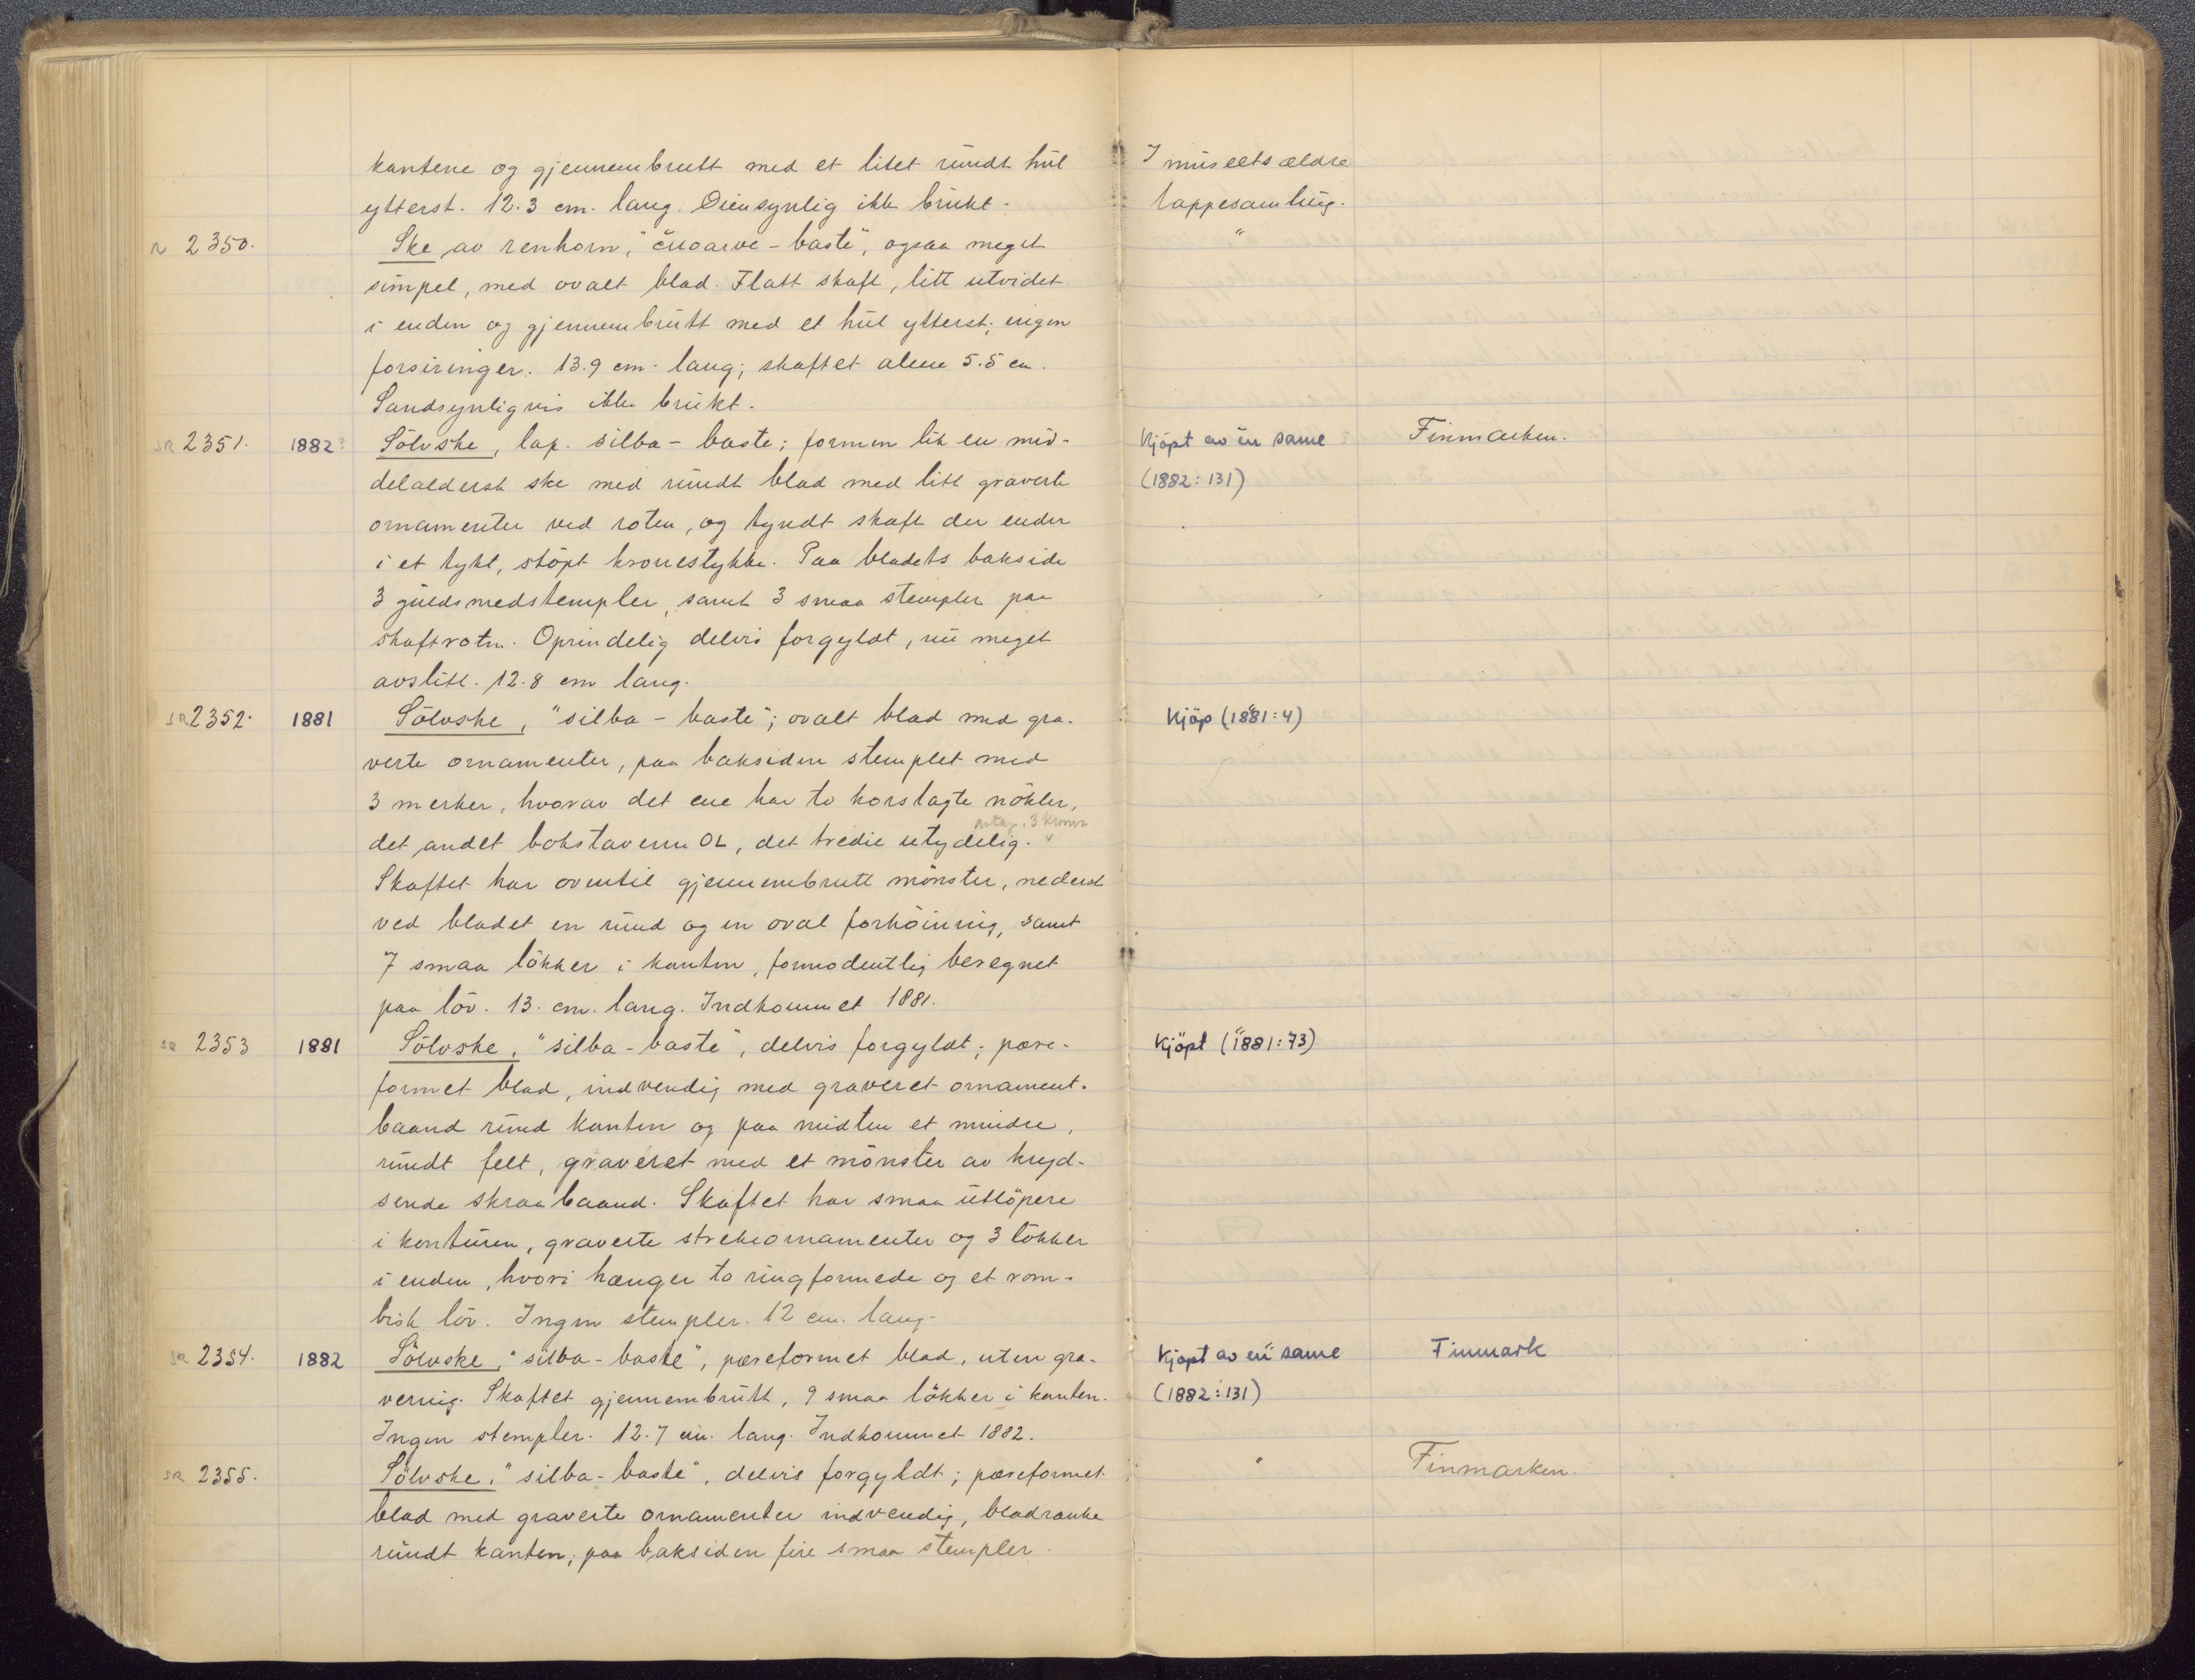 kantene og gjennembrutt med et litet rundt hul
I museets ældre
ytterst. 12.3 cm. lang. Öiensynlig ikke brukt.
lappesamling.
N 2350. Ske av renhorn, "čuoarve-baste", ogsaa meget "
simpel, med ovalt blad. Flatt skaft, litt utvidet
i enden og gjennembrutt med et hul ytterst; ingen
forsiringer. 13.9 cm. lang; skaftet alene 5.5 cm.
Sandsynligvis ikke brukt.
SR 2351. 1882? Sölvske, lap. silba-baste; formen lik en mid- Kjöpt av en same Finmarken.
delaldersk ske med rundt blad med litt graverte (1882:131)
ornamenter ved roten, og tyndt skaft der ender
i et tykt, stöpt kronestykke. Paa bladets bakside
3 guldsmedstempler, samt 3 smaa stempler paa
skaftroten. Oprindelig delvis forgyldt, nu meget
avslitt. 12.8 cm lang.
SR 2352. 1881 Sölvske, "silba-baste"; ovalt blad med gra- Kjöp (1881:4)
verte ornamenter, paa baksiden stemplet med
3 merker, hvorav det ene har to korslagte nökler,
antag. 3 kroner
det andet bokstavene OL, det tredie utydelig. v
Skaftet har oventil gjennembrutt mönster, nederst
ved bladet en rund og en oval forhöining, samt
7 smaa lökker i kanten, formodentlig beregnet
paa löv. 13. cm. lang. Indkommet 1881.
SR 2353 1881 Sölvske, "silba-baste", delvis forgyldt; pære- Kjöpt (1881:73)
formet blad, indvendig med graveret ornament-
baand rund kanten og paa midten et mindre,
rundt felt, graveret med et mönster av kryd-
sende skraabaand. Skaftet har smaa utlöpere
i konturen, graverte strekornamenter og 3 lökker
i enden, hvori hænger to ringformede og et rom-
bisk löv. Ingen stempler. 12 cm. lang.
SR 2354. 1882 Sölvske, "silba-baste", pæreformet blad, uten gra- Kjöpt av en same Finmark
vering. Skaftet gjennembrutt, 9 smaa lökker i kanten. (1882:131)
Ingen stempler. 12.7 cm. lang. Indkommet 1882.
SR 2355. Sölvske, "silba-baste", delvis forgyldt; pæreformet " Finmarken.
blad med graverte ornamenter indvendig, bladranke
rundt kanten; paa baksiden fire smaa stempler.